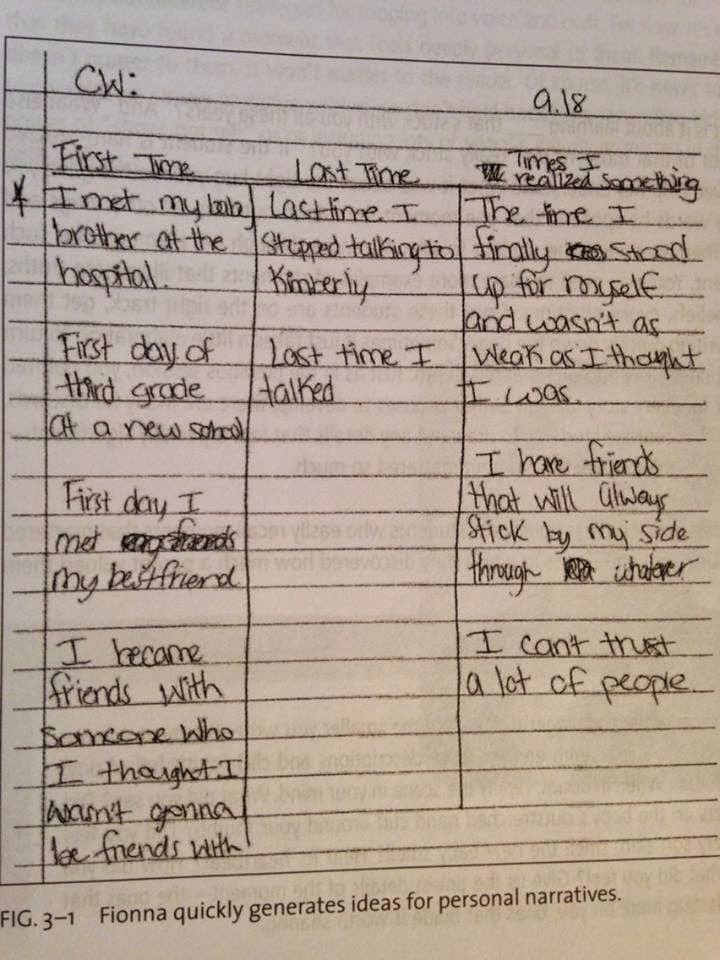 CW:
9.18
First Time
I met my baby
brother at the
hospital.
First day of
third grade
at a new school
First day I
met
my bestfriend
I became
friends with
someone who
I thought I
wasn't gonna
be friends with
Last Time
Last time I
stopped talking to
Kimberly
Last time I
talked
Times I
realized something
The time I
finally stood
up for myself
and wasn't as
weak as I thought
I was.
I have friends
that will always
stick by my side
through whatever
I can't trust
a lot of people.
FIG. 3–1 Fionna quickly generates ideas for personal narratives.